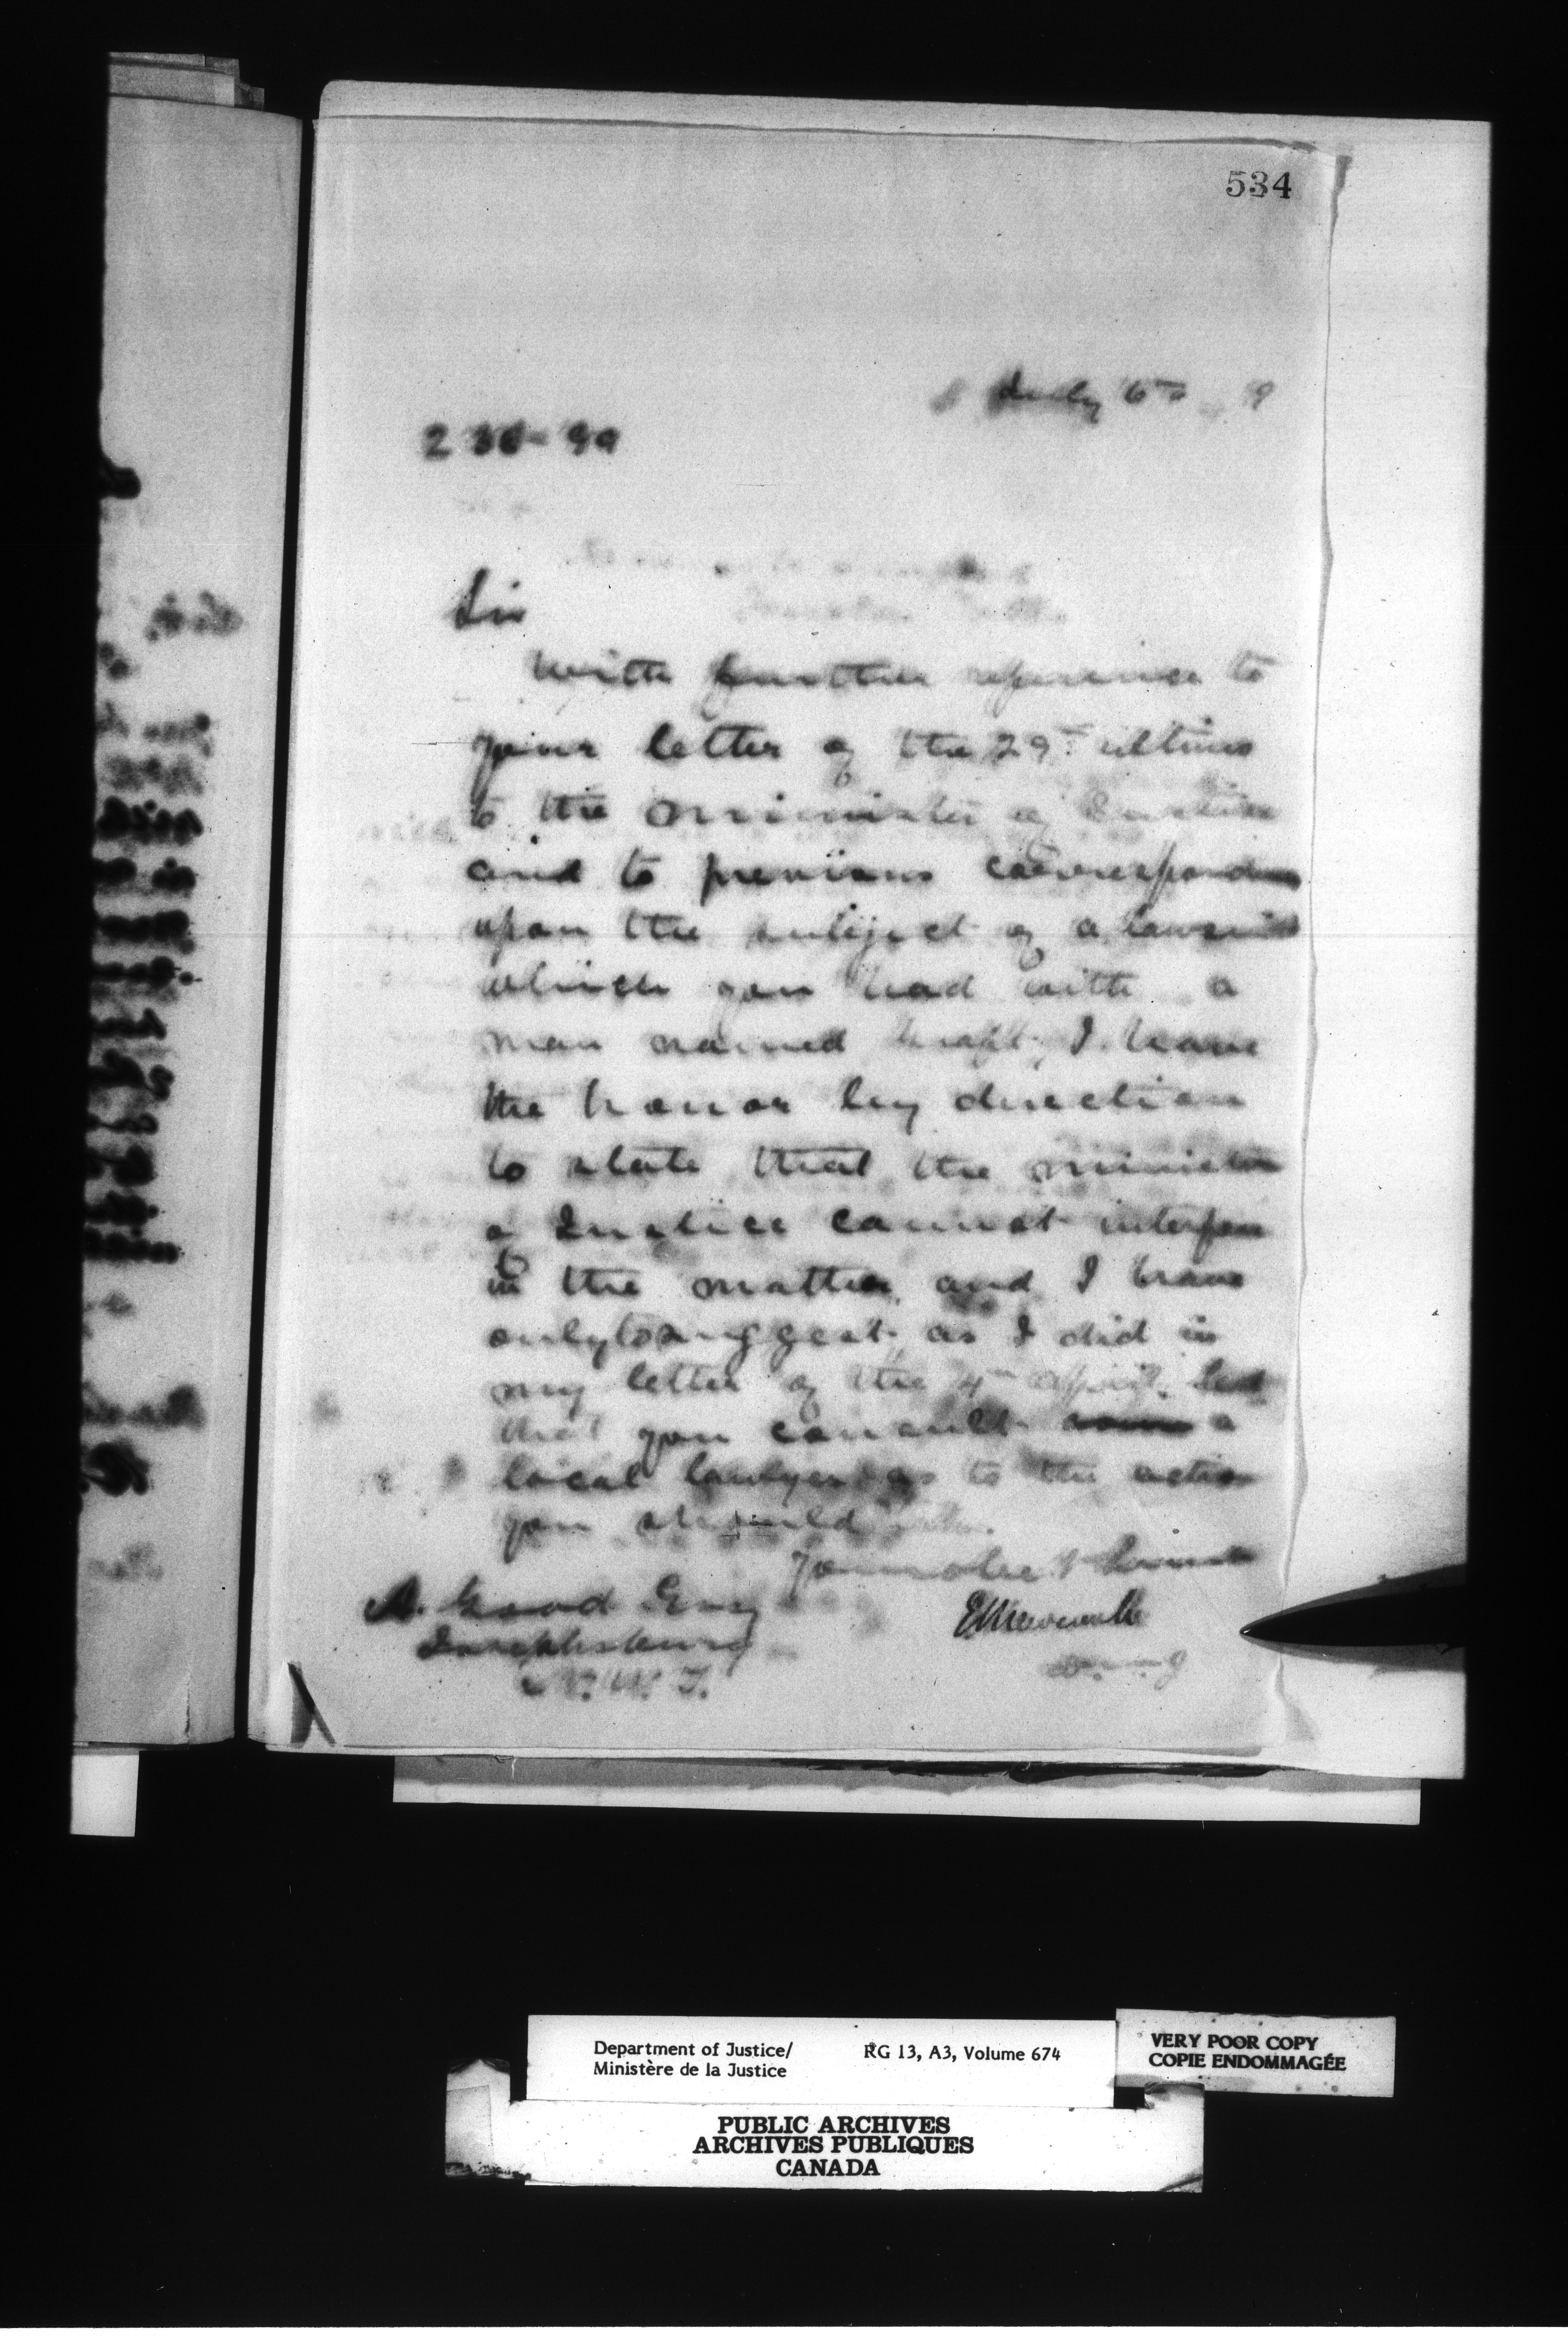 534
July 6th 9
238-99
Sir
With further reference to
your letter of the 29th ultimo
to the Minister of Justice
and to previous correspondence
upon the subject of a lawsuit
which you had with a
man named I have
the honor by direction
to state that the Minister
of Justice cannot interfere
in the matter and I have
only to suggest as I did in
my letter of the 4th April last
that you consult a
local lawyer as to the action
you should
Your obedt Servant
A. Good Esq
Josephsburg
N.W.T.
Department of Justice/ RG 13, A3, Volume 674
Ministère de la Justice
VERY POOR COPY
COPIE ENDOMMAGÉE
PUBLIC ARCHIVES
ARCHIVES PUBLIQUES
CANADA